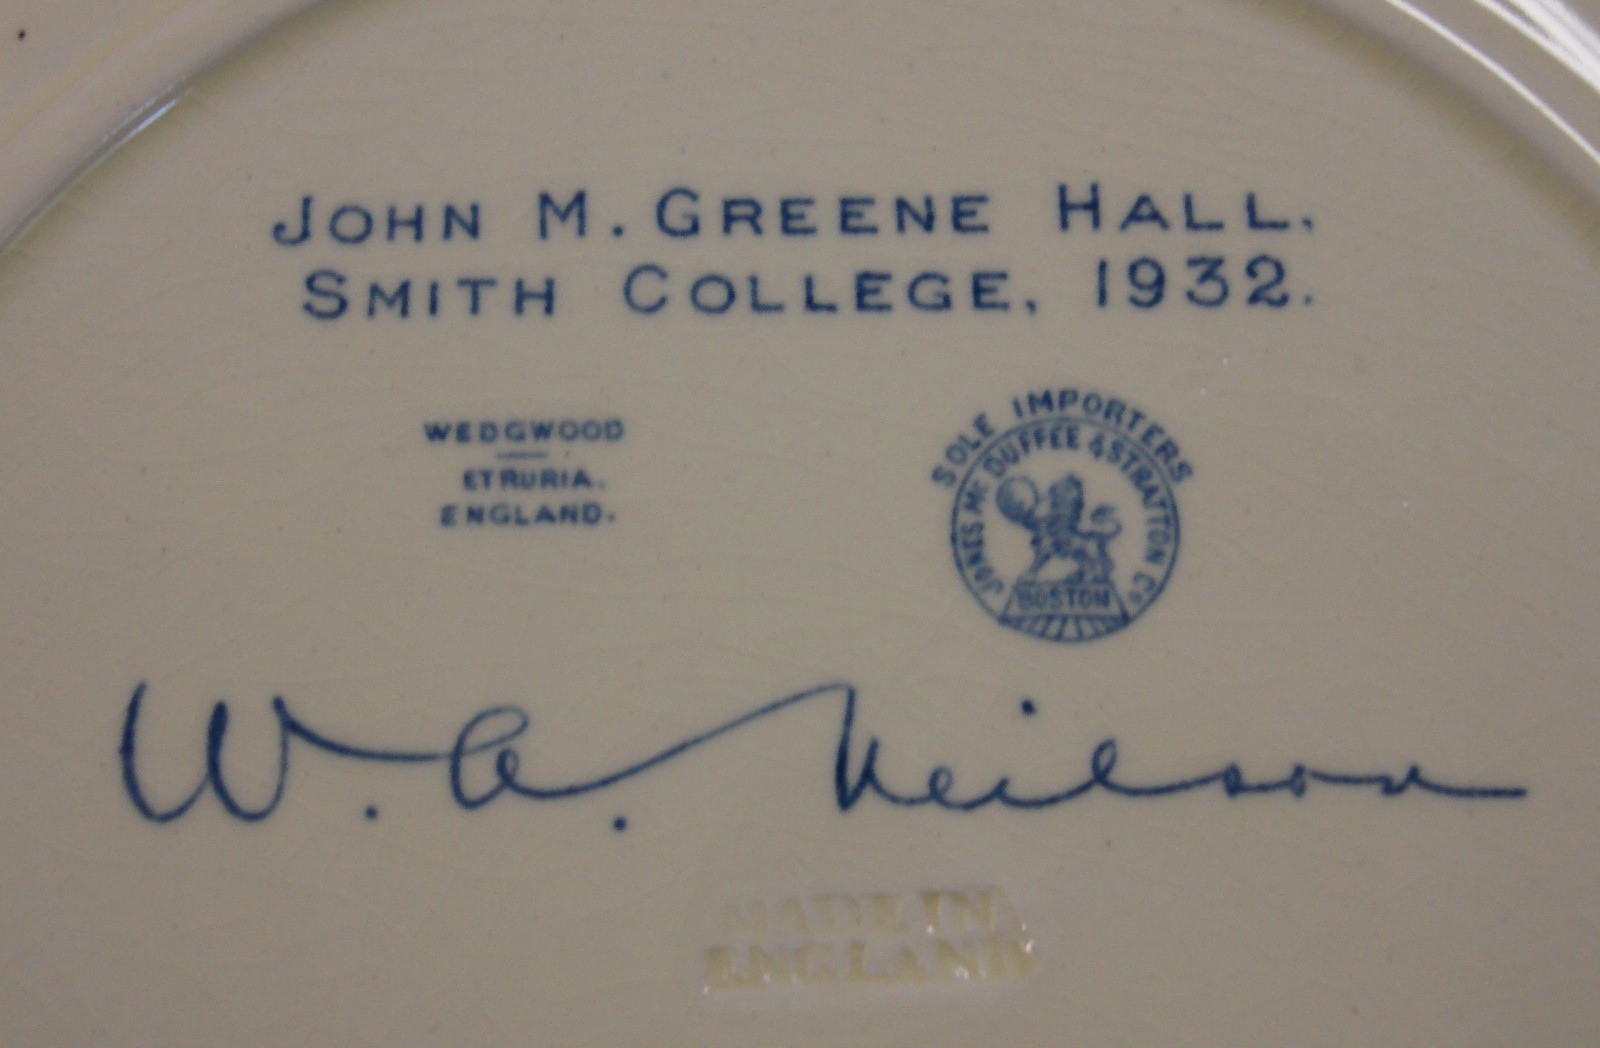 JOHN M. GREENE HALL.
SMITH COLLEGE, 1932.
WEDGWOOD
ETRURIA.
ENGLAND.
SOLE IMPORTERS
JONES MC DUFFEE & STRATTON CO
BOSTON
W. A. Neilson
MADE IN
ENGLAND